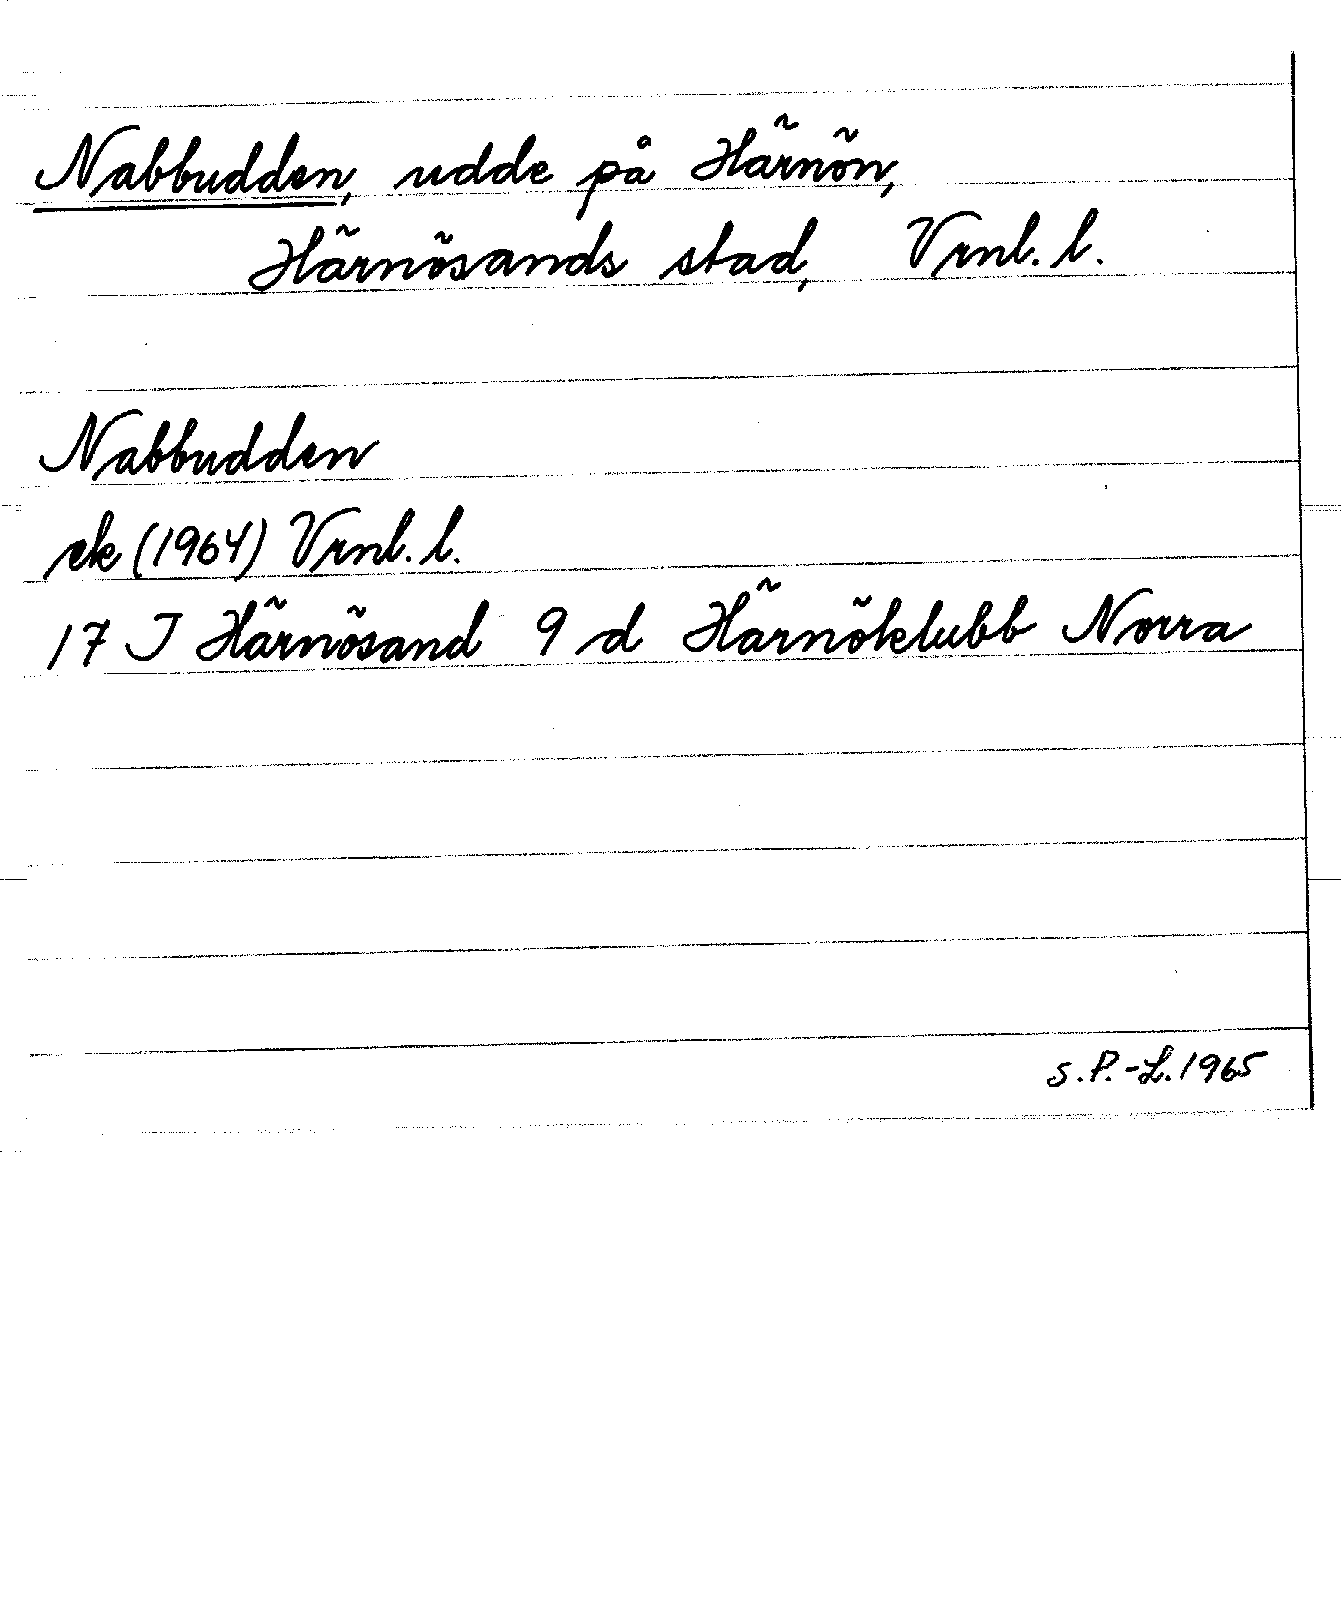 Nabbudden, udde på Härnön,
Härnösands stad, Vrnl. l.
Nabbudden
ek (1964) Vrnl. l.
17 I Härnösand 9 d Härnöklubb Norra
S.P.-L. 1965